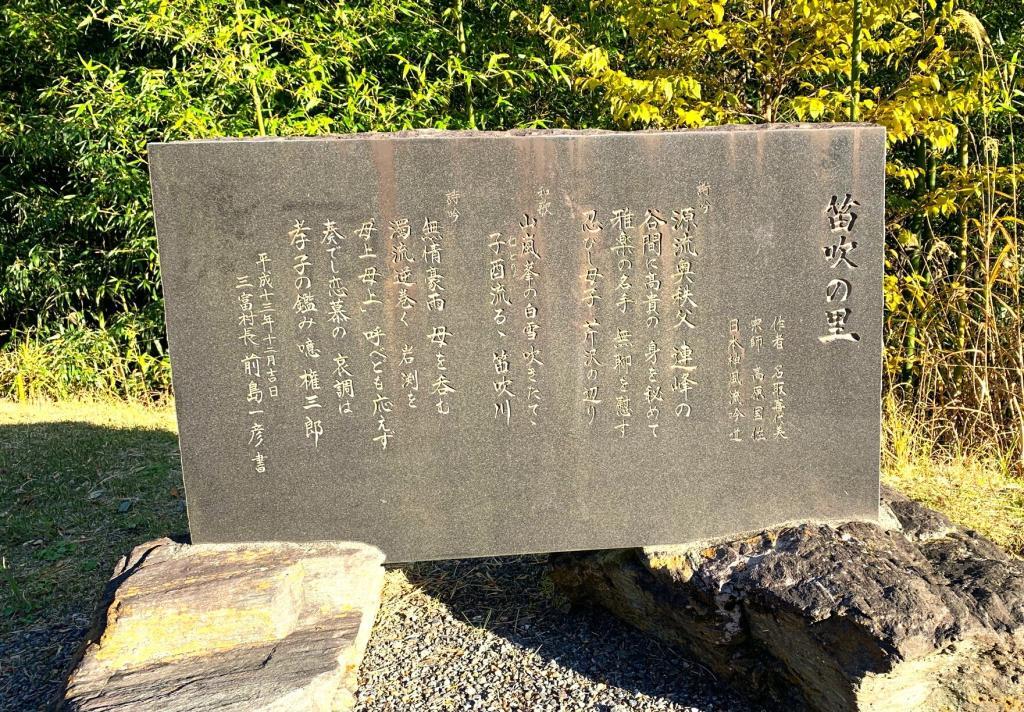 笛吹の里
作者 名取
宗師 高原
日本神風流吟
詩吟
源流奥秩父 連峰の
谷間に高貴の 身を秘めて
雅楽の名手 無聊を慰す
忍びし母子 芹沢の辺り
和歌
山嵐峯の白雪吹きたてゝ
子酉流るゝ笛吹川
ねとり
詩吟
無情豪雨 母を呑む
濁流逆巻く 岩渕を
母上母上 呼べども応えず
奏でし恋慕の 哀調は
孝子の鑑み噫 権三郎
平成十三年十二月吉日
三富村長 前島一彦書